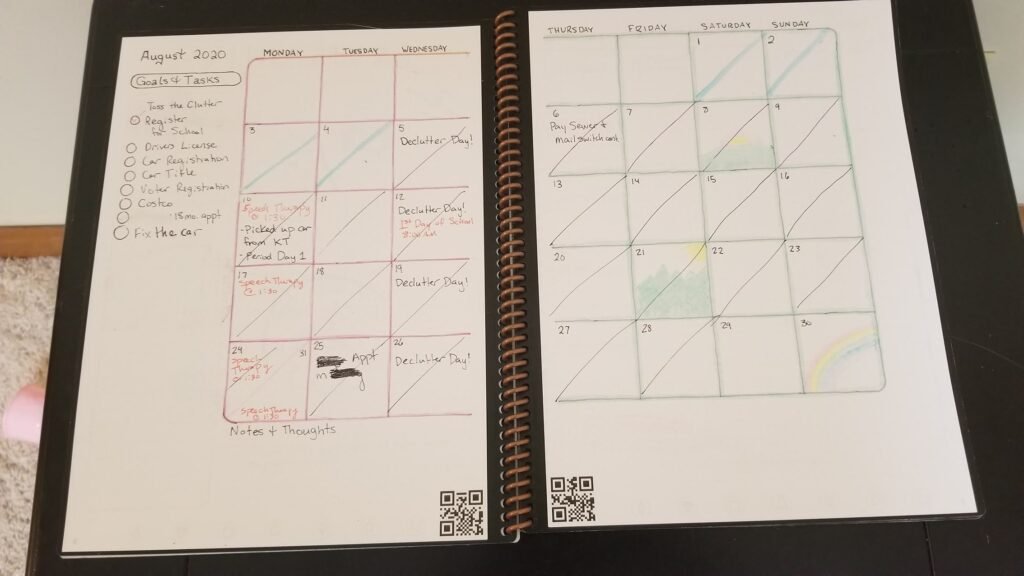 August 2020
Goals & Tasks
Toss the Clutter
Register
for School
Drivers License
Car Registration
Car Title
Voter Registration
Costco
18mo. appt
Fix the car
MONDAY TUESDAY WEDNESDAY
3 4 5
Declutter Day!
10 11 12
Speech Therapy
@ 1:30
-Picked up car
from KT
-Period Day 1
Declutter Day!
1st Day of School
17 18 19
Speech Therapy
@ 1:30
Declutter Day!
24 31 25 26
Speech
Therapy
@ 1:30
Speech Therapy
@ 1:30
Appt
in
Declutter Day!
Notes & Thoughts
THURSDAY FRIDAY SATURDAY SUNDAY
1 2
6 7 8 9
Pay Sewer &
mail switch cont
13 14 15 16
20 21 22 23
27 28 29 30